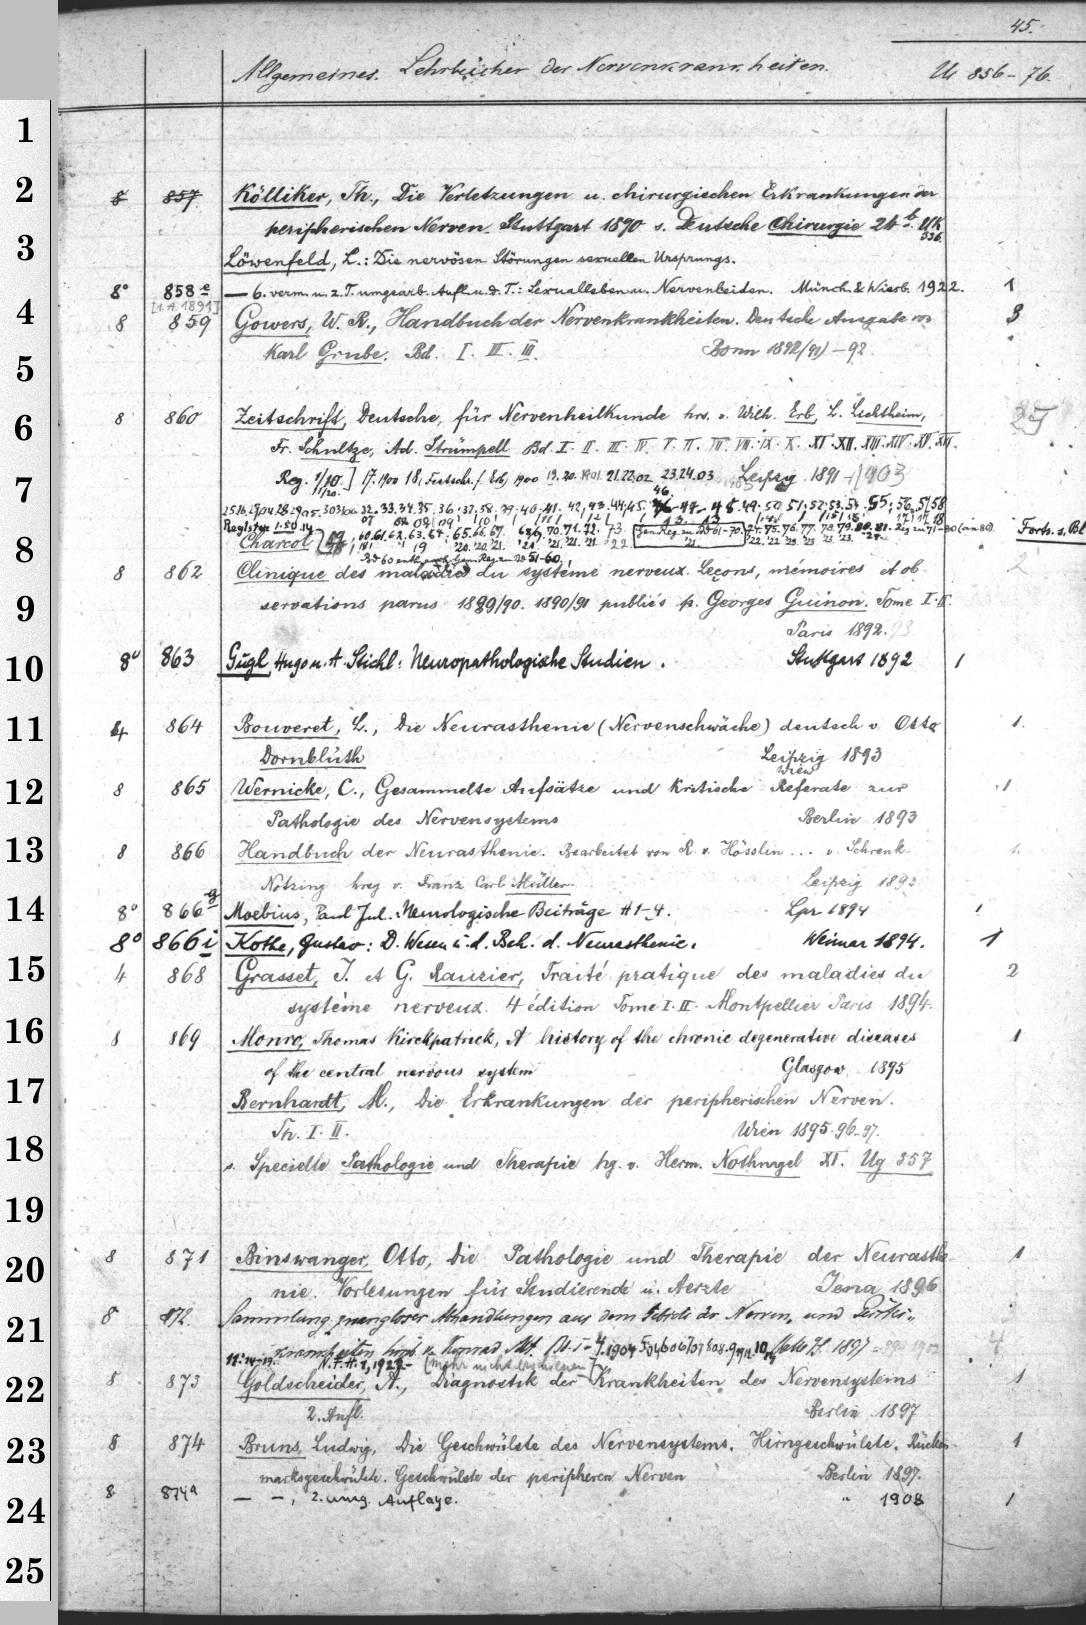 45.
Allgemeines. Lehrbücher der Nervenkrankheiten. Uk 856-76.
1
2
8 857 Kölliker, Th., Die Verletzungen u. chirurgischen Erkrankungen der
peripherischen Nerven. Stuttgart 1890 s. Deutsche Chirurgie 24 b. Uk
3
Löwenfeld, L.: Die nervösen Störungen sexuellen Ursprungs.
8° 858 e — 6. verm. u. z. T. umgearb. Aufl. u. d. T.: Sexualleben u. Nervenleiden. Münch. & Wiesb. 1922. 1
[1. A. 1891]
4
8 859 Gowers, W. R., Handbuch der Nervenkrankheiten. Deutsche Ausgabe von 3
Karl Grube. Bd. I. II. III. Bonn 1892(/91) - 92
5
6
8 860 Zeitschrift, Deutsche, für Nervenheilkunde hrs. v. Wilh. Erb, L. Lichtheim,
Fr. Schultze, Ad. Strümpell Bd. I. II. III. IV. V. VI. VII. VIII. IX. X. XI. XII. XIII. XIV. XV. XVI.
7
Reg. 1/10.] 17. 1900 18. Festschr. f. Erb, 1900 19. 20. 1901 21. 22. 02 23. 24. 03 Leipzig 1891-1903
Register 1-50. 14
8
Charcot Forts. s. Bl
8 862 Clinique des maladies du système nerveux. Leçons, mémoires et ob- 2
9
servations parus 1889/90. 1890/91 publiés p. Georges Guinon. Tome I. II.
Paris 1892. 93
10
8° 863 Gugl, Hugo u. A. Stichl: Neuropathologische Studien. Stuttgart 1892 1
11
4 864 Bouveret, L., Die Neurasthenie (Nervenschwäche) deutsch v. Otto 1.
Dornblüth Leipzig 1893
Wien
12
8 865 Wernicke, C., Gesammelte Aufsätze und kritische Referate zur 1
Pathologie des Nervensystems Berlin 1893
13
8 866 Handbuch der Neurasthenie. Bearbeitet von R. v. Hösslin ... v. Schrenk- 1.
Notzing hrsg v. Franz Carl Müller. Leipzig 1893
14
8° 866 g Moebius, Paul Jul.: Neurologische Beiträge H 1-4. Lpz 1894 1
8° 866 i Kothe, Gustav: D. Wesen u. d. Beh. d. Neurasthenie. Weimar 1894. 1
15
4 868 Grasset, J. et G. Rauzier, Traité pratique des maladies du 2
système nerveux. 4 édition Tome I. II. Montpellier Paris 1894.
16
8 869 Monro, Thomas Kirckpatrick, A history of the chronic degenerative diseases 1
of the central nervous system Glasgow 1895
17
Bernhardt, M., Die Erkrankungen der peripherischen Nerven.
Th. I. II. Wien 1895. 96-97.
18
s. Specielle Pathologie und Therapie hg. v. Herm. Nothnagel XI. Ug 857
19
20
8 871 Binswanger, Otto, Die Pathologie und Therapie der Neurasthe- 1
nie. Vorlesungen für Studierende u. Aerzte Jena 1896
21
8 872 Sammlung zwangloser Abhandlungen aus dem Gebiete der Nerven- und Geistes-
krankheiten, hrsg. v. Konrad Alt. Halle 1897 4
N. F. H. 1, 1922- (mehr nicht erschienen)
22
8 873 Goldscheider, A., Diagnostik der Krankheiten des Nervensystems 1
2. Aufl. Berlin 1897
23
8 874 Bruns, Ludwig, Die Geschwülste des Nervensystems. Hirngeschwülste. Rücken- 1
marksgeschwülste. Geschwülste der peripheren Nerven Berlin 1897.
24
8 874a — —, 2. umg. Auflage. " 1908 1
25